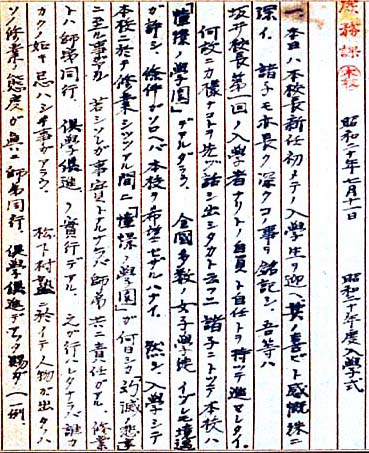 庶務課
昭和二十年七月十一日 昭和二十年度入學式
一、本日ハ本校長新任初メテノ入學生ヲ迎ヘ其ノ喜ビト感慨殊ニ
深イ。諸子モ亦長ク深クコノ事ヲ銘記シ、吾等ハ
坂井校長第一回ノ入學者ナリトノ自負ト自任トヲ持ツテ進マレタイ。
何故ニカ様ナコトヲ先ヅ話シ出シタカト云フニ諸子ニトツテ本校ハ
「憧憬ノ學園」デアルダラウ。全國多數ノ女子學徒イヅレモ境遇
ガ許シ、條件ガソロヘバ本校ヲ希望セザルハナイ。然シ入學シテ
本校ニ於テ修業シツツアル間ニ「憧憬ノ學園」ガ何日シカ
ニ至ル事アラバ若シソレガ事實トナルナラバ師弟共ニ責任ガアル。修業
トハ師弟同行、倶學倶進ノ實行デアル。之ガ行ハレタナラバ誰カ
カクノ如キ忌ハシキ事ガアラウ。松下村塾ニ於イテ人物ガ出タノハ
ソノ修業ノ態度ガ真ニ師弟同行、倶學倶進デアツタ賜ガ(一例、